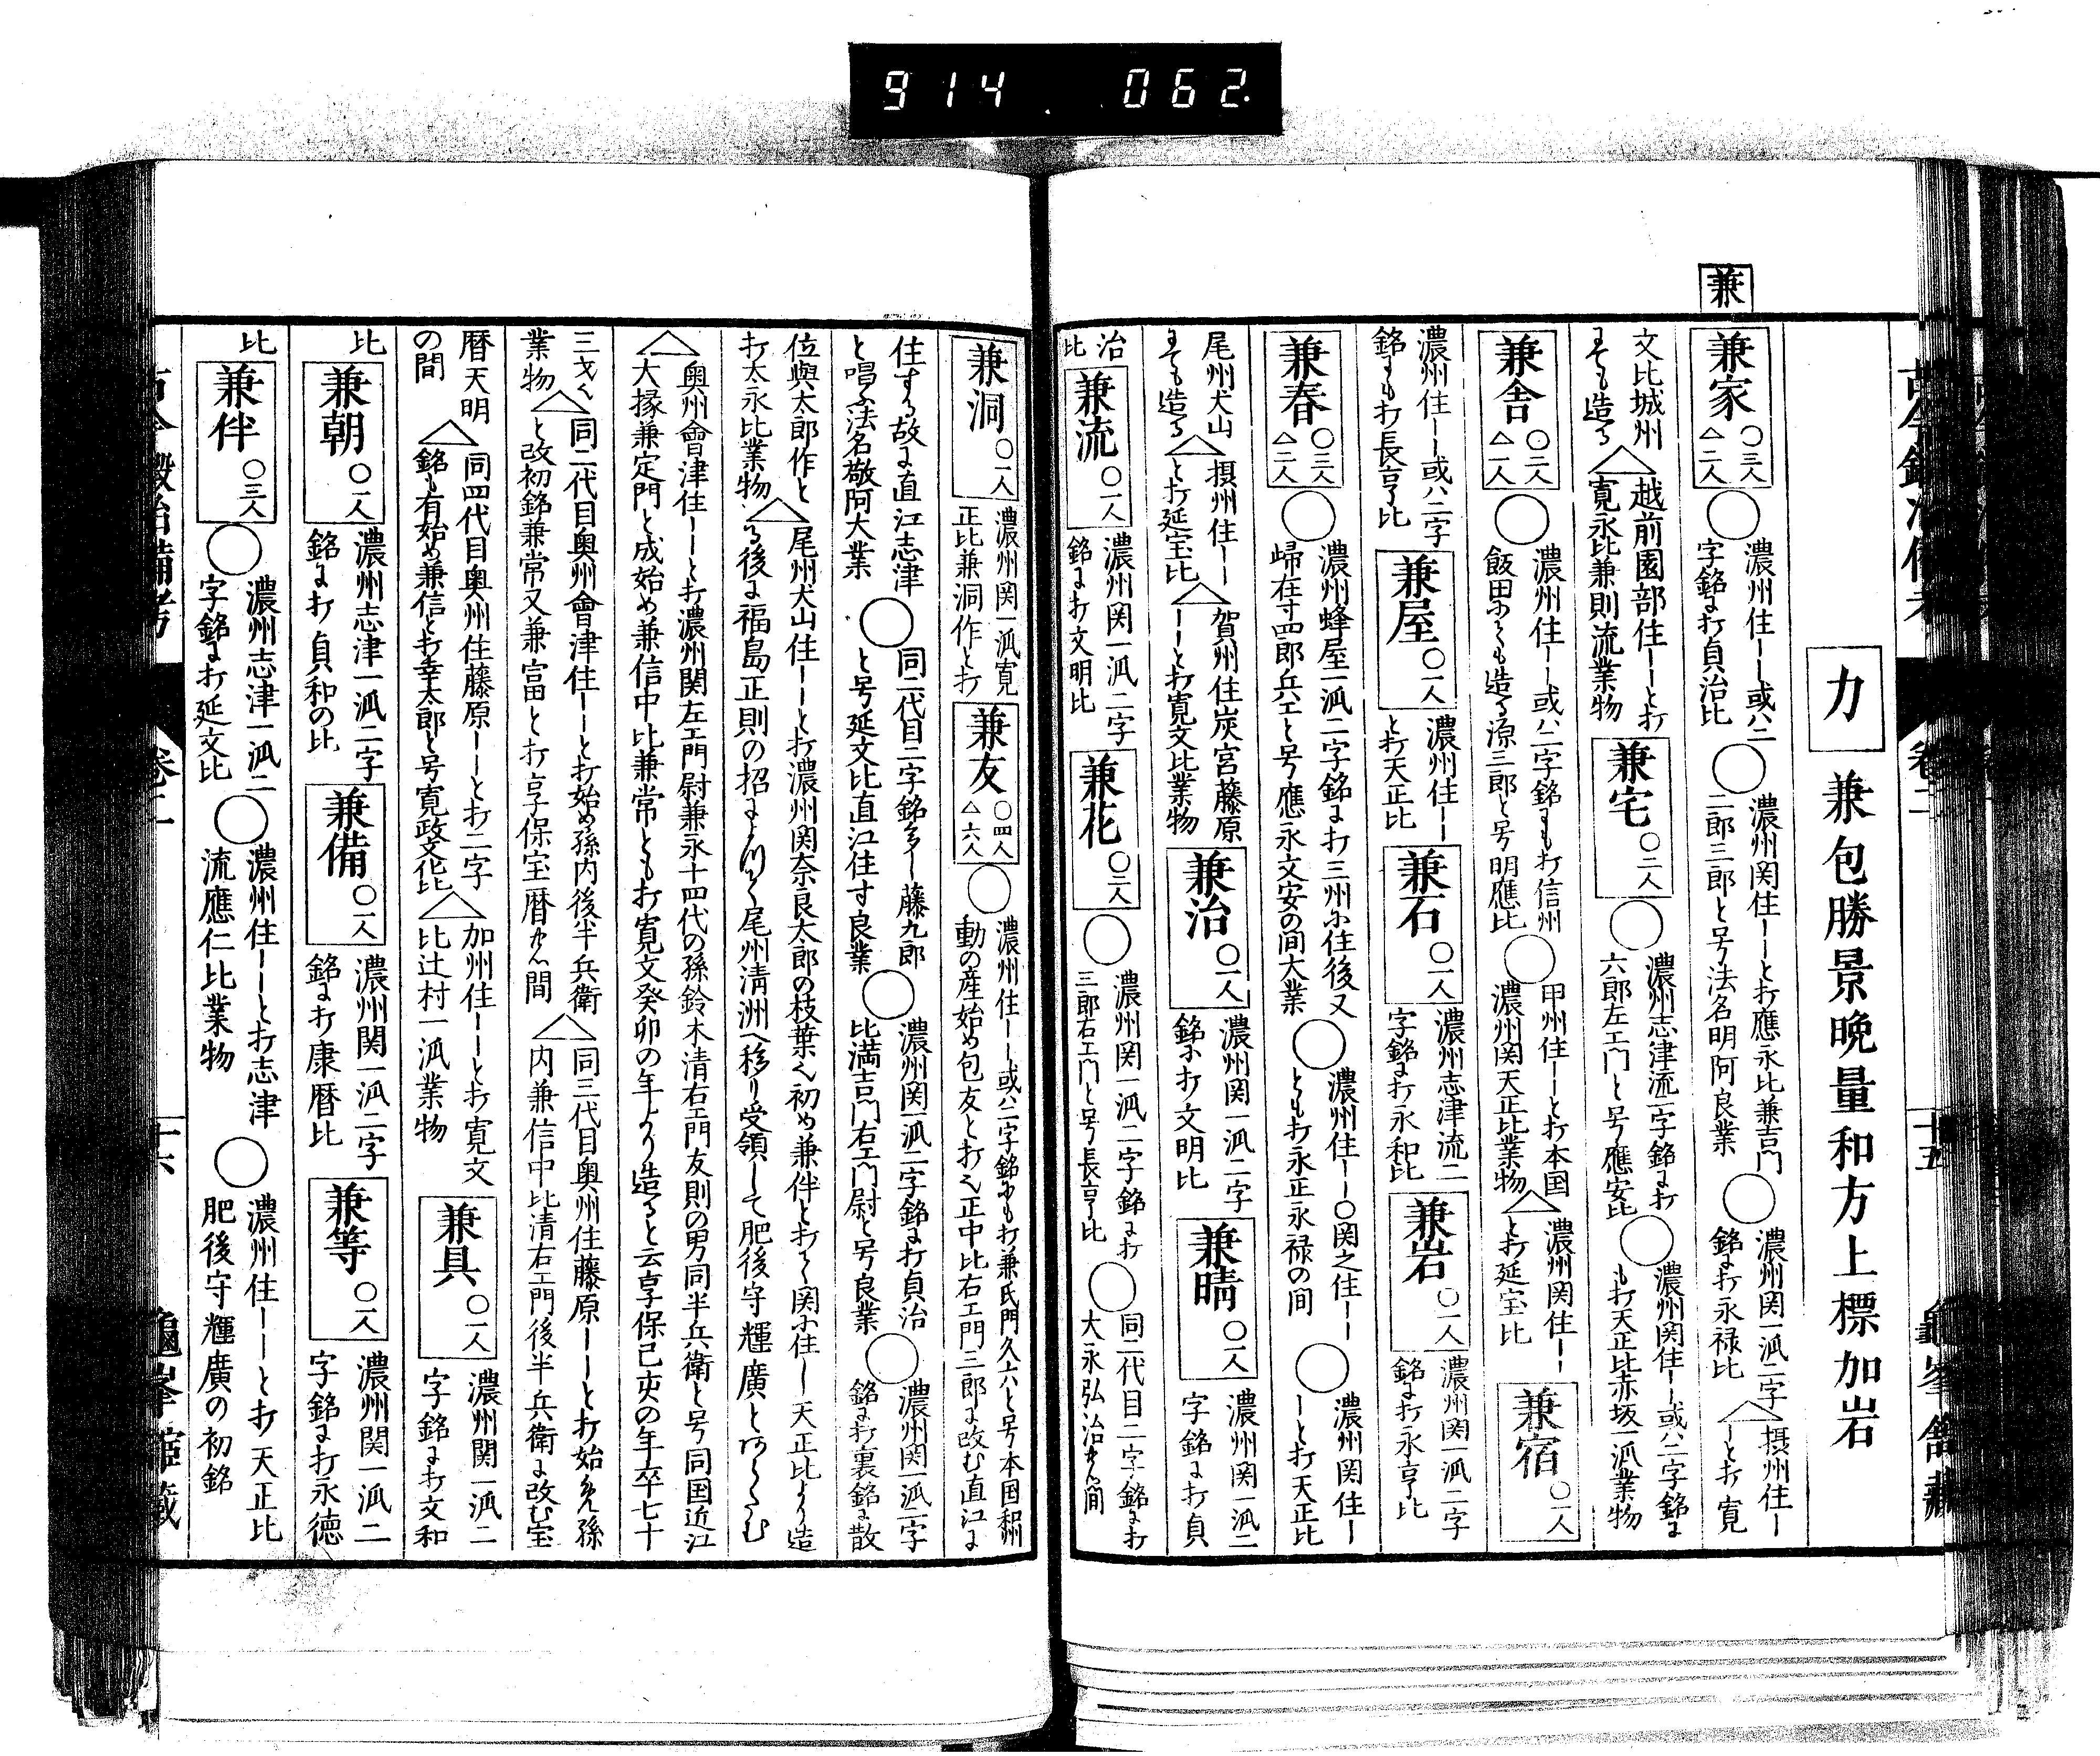 914 062
兼
力 兼包勝景晩量和方上標加岩
兼家 〇三人 △二人
〇濃州住――或ハ二
字銘ニ打貞治比
〇濃州関住――と打應永比兼吉門
二郎三郎と号法名明阿良業
〇濃州関一派二字
銘ニ打永禄比
△摂州住―
―と打寛
文比城州
にても造る
△越前園部住――と打
寛永比兼則流業物
兼宅 〇二人
〇濃州志津流二字銘ニ打
六郎左エ門と号應安比
〇濃州関住――或ハ二字銘ニ
も打天正比赤坂一派業物
兼舎 〇二人 △一人
〇濃州住――或ハ二字銘ニも打信州
飯田にても造る源三郎と号明應比
〇甲州住――と打本国
濃州関天正比業物
△濃州関住――
と打延宝比
兼宿 〇一人
濃州住――或ハ二字
銘ニも打長亨比
兼屋 〇一人
濃州住――
と打天正比
兼石 〇一人
濃州志津流二
字銘ニ打永和比
兼岩 〇一人
濃州関一派二字
銘ニ打永亨比
兼春 〇三人 △二人
〇濃州蜂屋一派二字銘ニ打三州ニ住後又
帰在寸四郎兵エと号應永文安の間大業
〇濃州住――〇関之住――
とも打永正永禄の間
〇濃州関住―
―と打天正比
尾州犬山
にても造る
△摂州住――
と打延宝比
△賀州住炭宮藤原
――と打寛文比業物
兼治 〇一人
濃州関一派二字
銘ニ打文明比
兼晴 〇一人
濃州関一派二
字銘ニ打貞
治
比
兼流 〇一人
濃州関一派二字
銘ニ打文明比
兼花 〇二人
〇濃州関一派二字銘ニ打
三郎右エ門と号長亨比
〇同二代目二字銘ニ打
大永弘治の間
十五
兼洞 〇一人
濃州関一派寛
正比兼洞作と打
兼友 〇四人 △六人
〇濃州住――或ハ二字銘ニも打兼氏門久六と号本国和州
動の産始め包友と打く正中比右エ門三郎ニ改む直江ニ
住する故ニ直江志津
と唱ふ法名敬阿大業
〇同二代目二字銘多し藤九郎
と号延文比直江住す良業
〇濃州関一派二字銘ニ打貞治
比満吉門右エ門尉と号良業
〇濃州関一派二字
銘ニ打裏銘ニ散
位與太郎作と
打太永比業物
△尾州犬山住――と打濃州関奈良太郎の枝葉く初め兼伴と打く関ニ住―天正比より造
る後ニ福島正則の招によつて尾州清洲へ移り受領して肥後守輝廣とあらたむ
△奥州會津住――と打濃州関左エ門尉兼永十四代の孫鈴木清右エ門友則の男同半兵衛と号同国近江
大掾兼定門と成始め兼信中比兼常とも打寛文癸卯の年より造ると云享保己亥の年卒七十
三才く
業物
△同二代目奥州會津住――と打始め孫内後半兵衛
と改初銘兼常又兼富と打享保宝暦の間
△同三代目奥州住藤原――と打始め孫
内兼信中比清右エ門後半兵衛ニ改む宝
暦天明
の間
△同四代目奥州住藤原――と打二字
銘も有始め兼信と打幸太郎と号寛政文化比
△加州住――と打寛文
比辻村一派業物
兼具 〇一人
濃州関一派二
字銘ニ打文和
比
兼朝 〇一人
濃州志津一派二字
銘ニ打貞和の比
兼備 〇一人
濃州関一派二字
銘ニ打康暦比
兼等 〇一人
濃州関一派二
字銘ニ打永徳
比
兼伴 〇三人
〇濃州志津一派二
字銘ニ打延文比
〇濃州住――と打志津
流應仁比業物
〇濃州住――と打天正比
肥後守輝廣の初銘